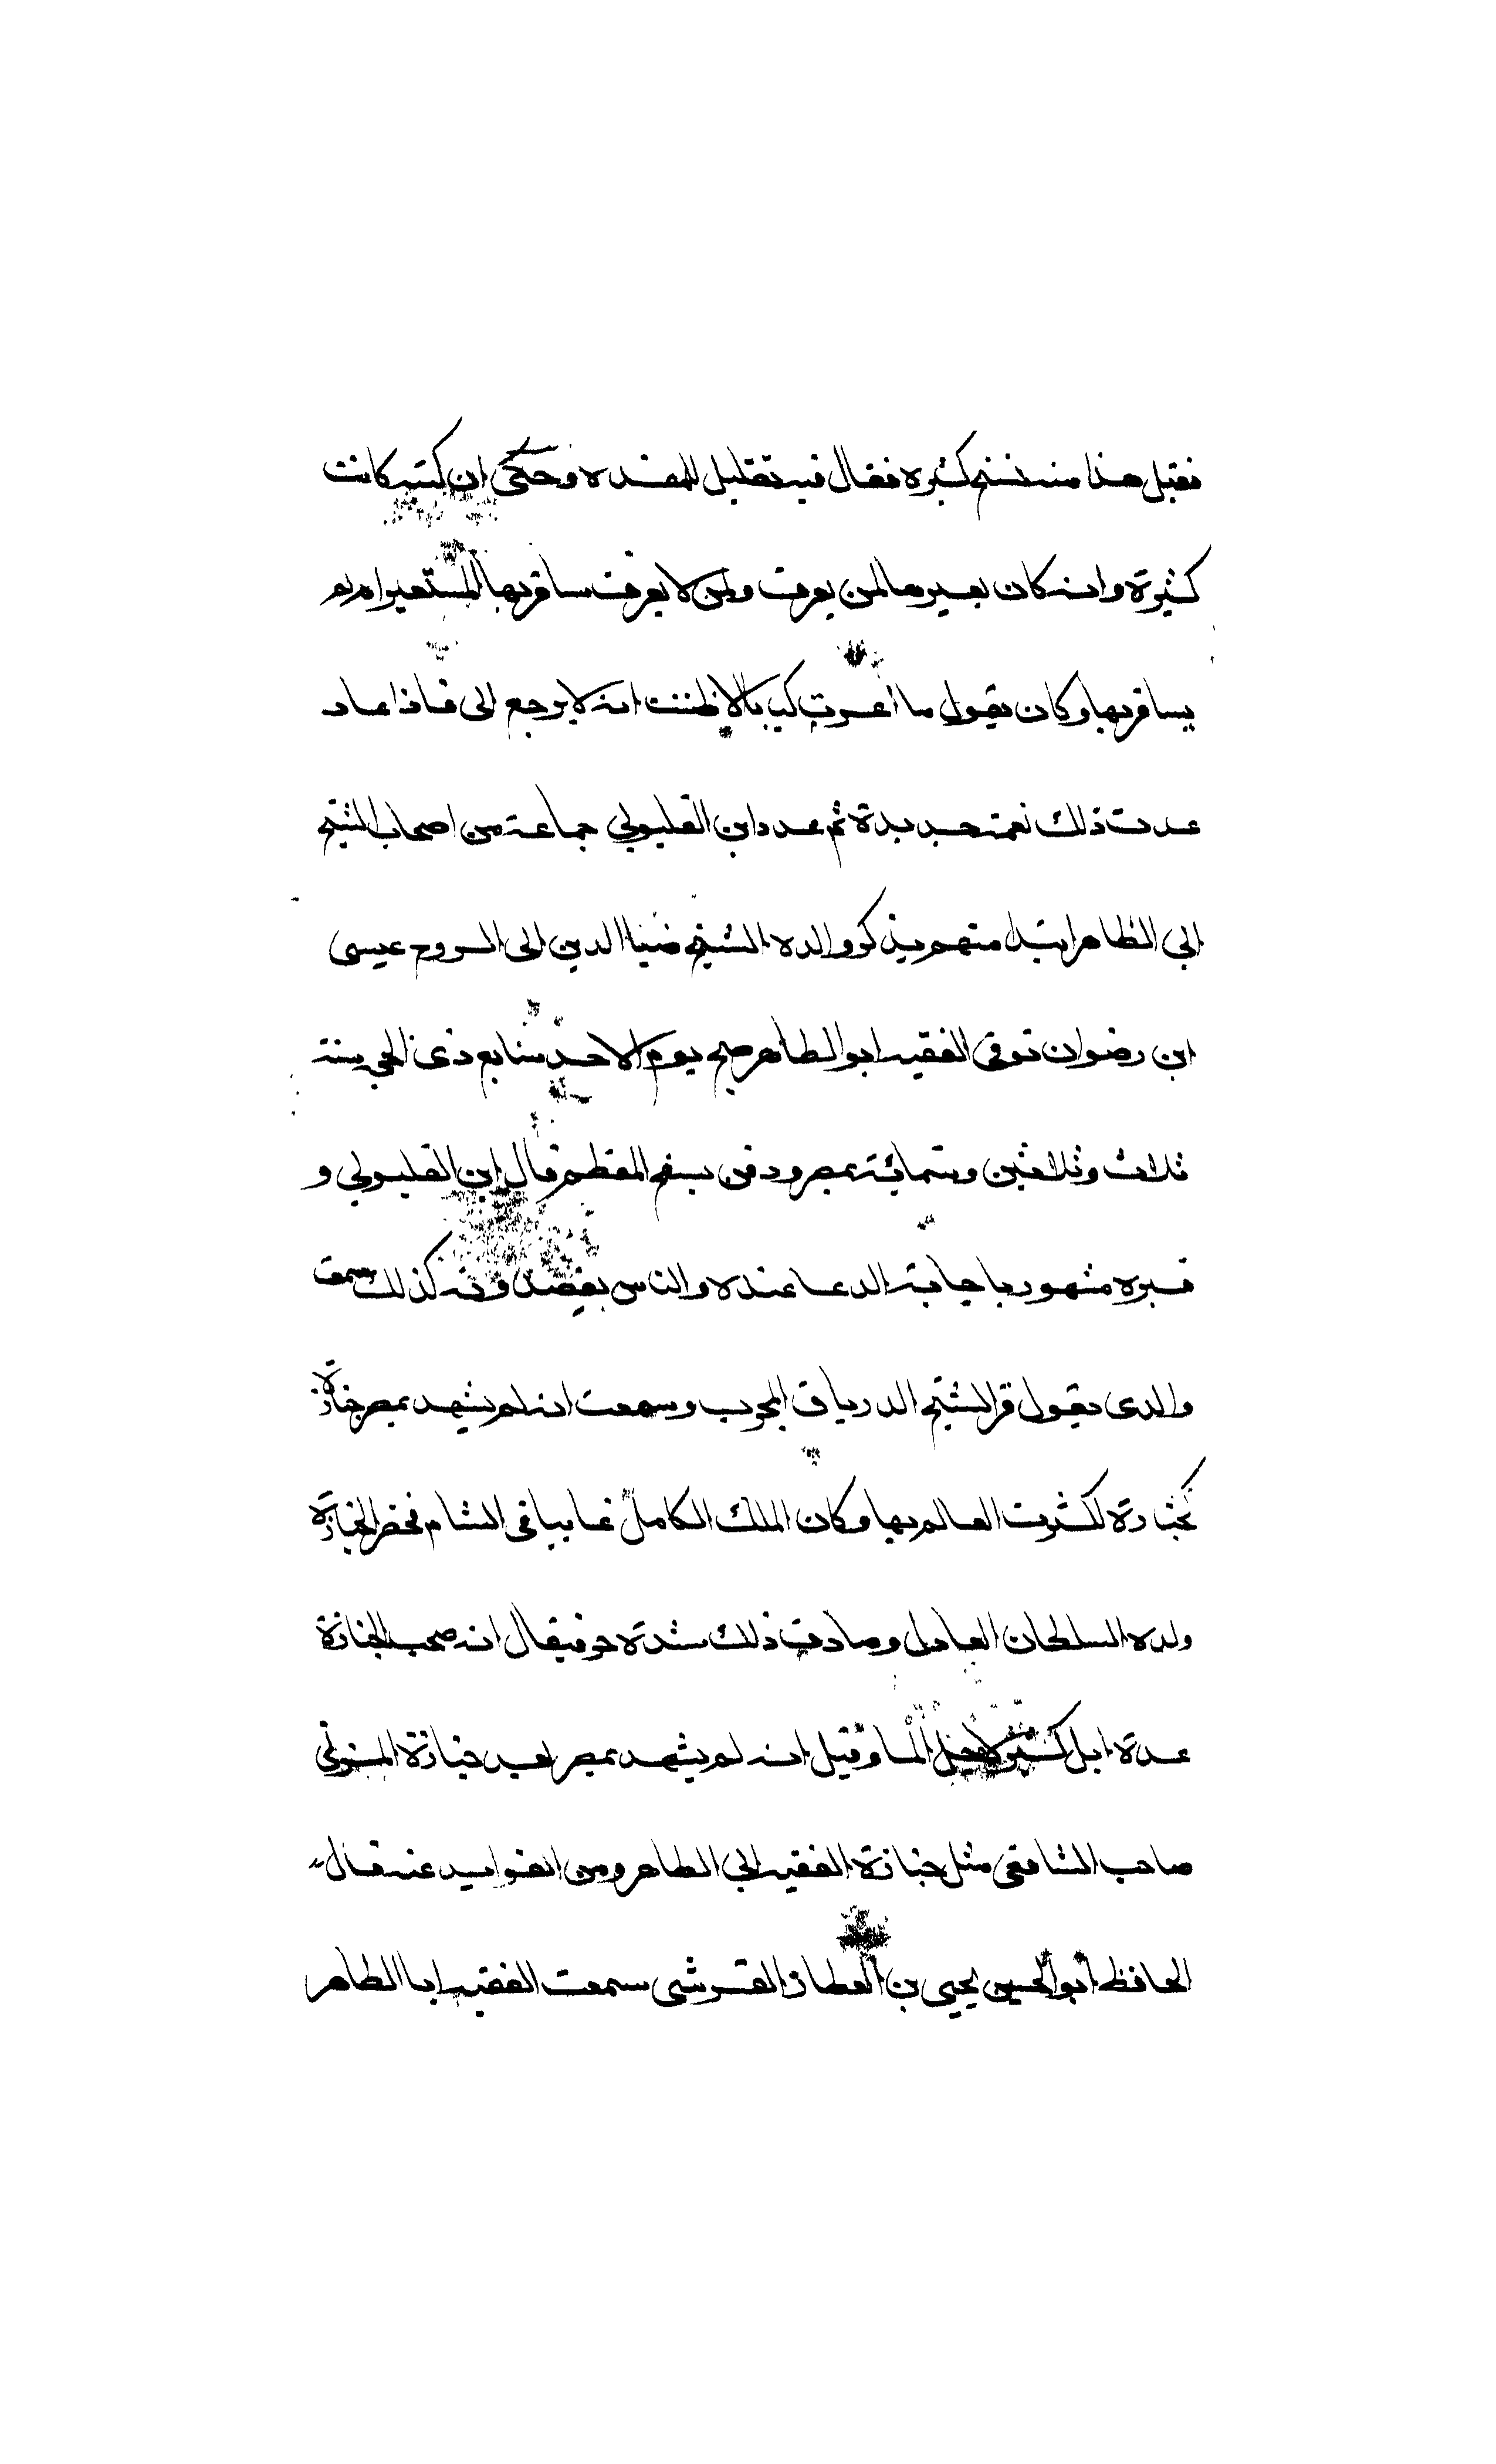 فقيل هذا منه نسخ كثيرة فقال فيه تقليل للمفسدة وحكى ان كتبه كانت
كثيرة وانه كان يعيرها لمن يعرف ولمن لا يعرف سافر بها المستعير ام لم
يسافر بها وكان يقول ما اعرت كتابا الا ظننت انه لا يرجع الى فاذا عاد
عددت ذلك نعمة جديدة ثم عدد ابن القليوبي جماعة من اصحاب الشيخ
ابي الطاهر ابتدا منهم بذكر والده الشيخ ضيا الدين ابى الروح عيسى
ابن رضوان توفى الفقيه ابو الطاهر صبح يوم الاحد سابع ذى الحجة سنة
ثلاث وثلاثين وستمائة بمصر ودفن بسفح المقطم قال ابن القليوبي و
قبره مشهور باجابة الدعا عنده والناس يقصدونه كذلك سمعت
والدى يقول قبر الشيخ الدرياق المجرب وسمعت انه لم يشهد بمصر جنازة
كجنازة لكثرت العالم بها وكان الملك الكامل غايبا فى الشام فحضر الجنازة
ولده السلطان العادل وصادف ذلك شدة حر فيقال انه صحب الجنازة
عدة ابل كثيرة لاجل الما وقيل انه لم يشهد بمصر بعد جنازة المزني
صاحب الشافعى مثل جنازة الفقيه ابي الطاهر ومن الفوايد عنه قال
الحافظ ابو الحسين يحيى بن العطار القرشى سمعت الفقيه ابا الطاهر